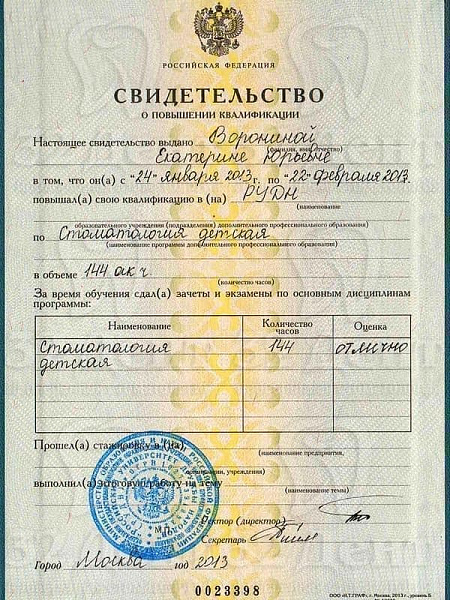 РОССИЙСКАЯ ФЕДЕРАЦИЯ
СВИДЕТЕЛЬСТВО
О ПОВЫШЕНИИ КВАЛИФИКАЦИИ
Настоящее свидетельство выдано Ворониной
(фамилия, имя, отчество)
Екатерине Юрьевне
в том, что он(а) с "24" января 2013 г. по "22" февраля 2013
повышал(а) свою квалификацию в (на) РУДН
(наименование
образовательного учреждения (подразделения) дополнительного профессионального образования)
по Стоматология детская
(наименование программы дополнительного профессионального образования)
в объеме 144 ак ч
(количество часов)
За время обучения сдал(а) зачеты и экзамены по основным дисциплинам
программы:
Наименование Количество часов Оценка
Стоматология детская 144 отлично
Прошел(а) стажировку в (на)
(наименование предприятия,
организации, учреждения)
выполнил(а) итоговую работу на тему
(наименование темы)
М.П.
Ректор (директор)
Секретарь
Город Москва год 2013
0023398
ООО «Н.Т.ГРАФ», г. Москва, 2013 г., уровень Б